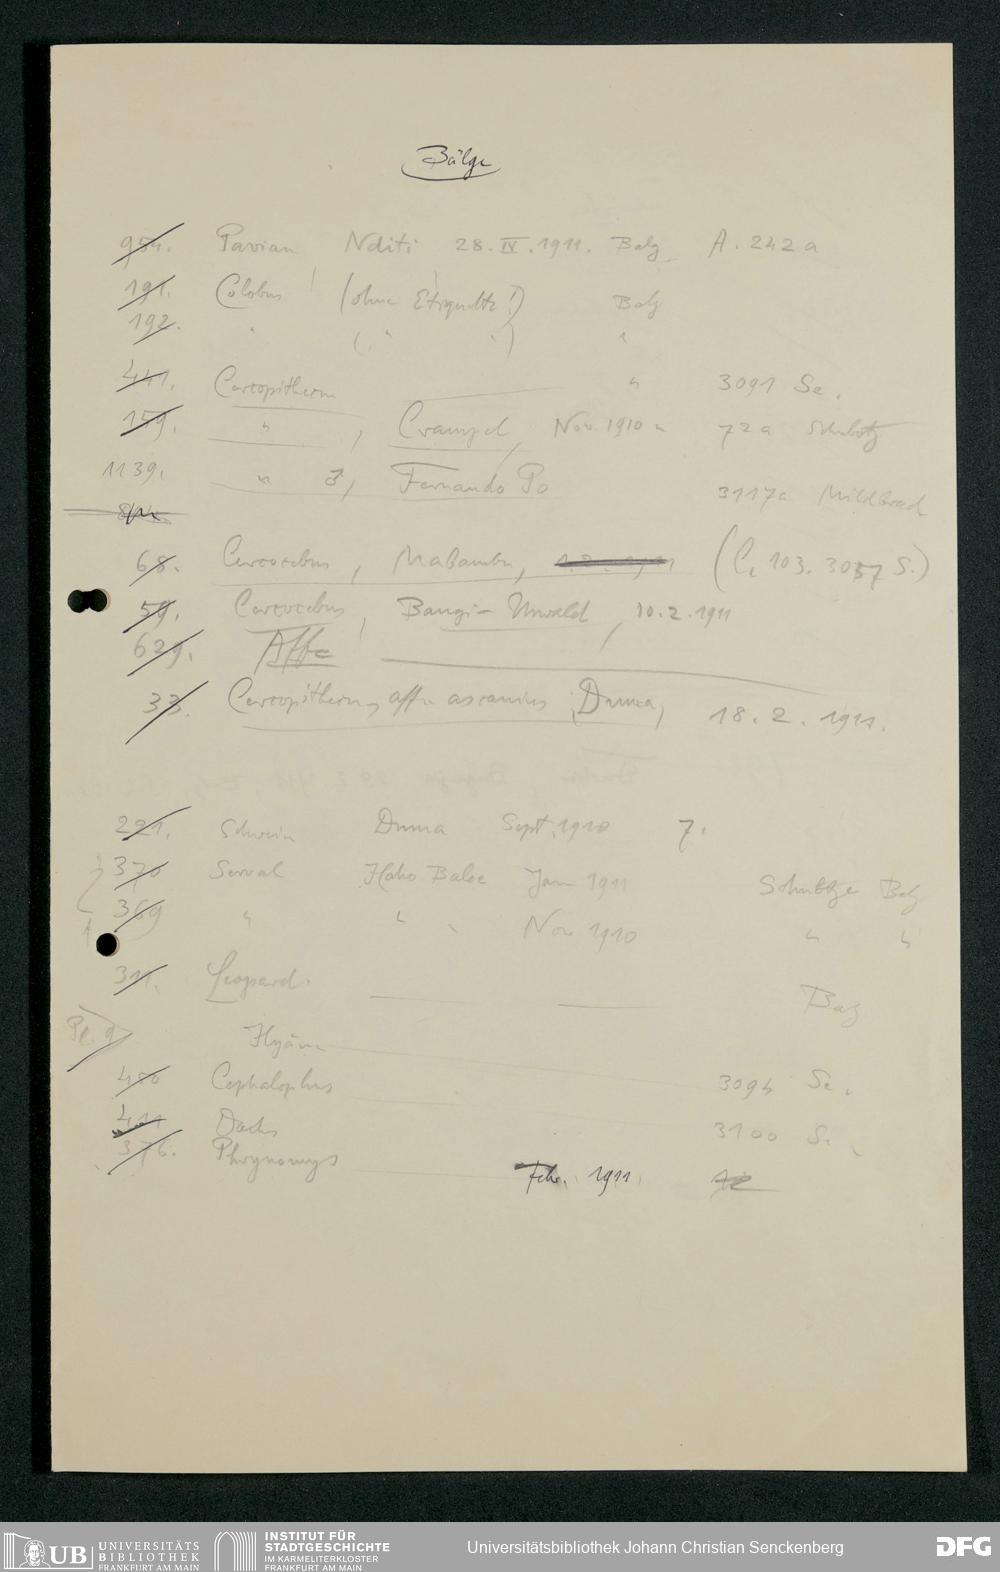 Bälge
954. Pavian Nditi 28.IV.1911. Balg A.242a
191. Colobus (ohne Etiquette!) Balg
192. " (" ") "
441. Cercopithecus " 3091 Se.
159. " , Crampel, Nov. 1910 " 72a Schubotz
1139. " ♂, Fernando Po 3117a Mildbraed
68. Cercocebus, (C. 103. 3037 S.)
59. Cercocebus, Bangi-Urwald, 10.2.1911
629. Affe
33. Cercopithecus aff. ascanius, Duma, 18.2.1911.
221. Schwein Duma Sept. 1910 7.
370 Serval Jan 1911 Schultze Balg
369 " " " Nov 1910 " "
311. Leopard. Balg
Hyäne
480 Cephalophus 3094 Se.
411 Dachs 3100 S.
376. Febr. 1911.
UB UNIVERSITÄTS
BIBLIOTHEK
FRANKFURT AM MAIN
INSTITUT FÜR
STADTGESCHICHTE
IM KARMELITERKLOSTER
FRANKFURT AM MAIN
Universitätsbibliothek Johann Christian Senckenberg
DFG